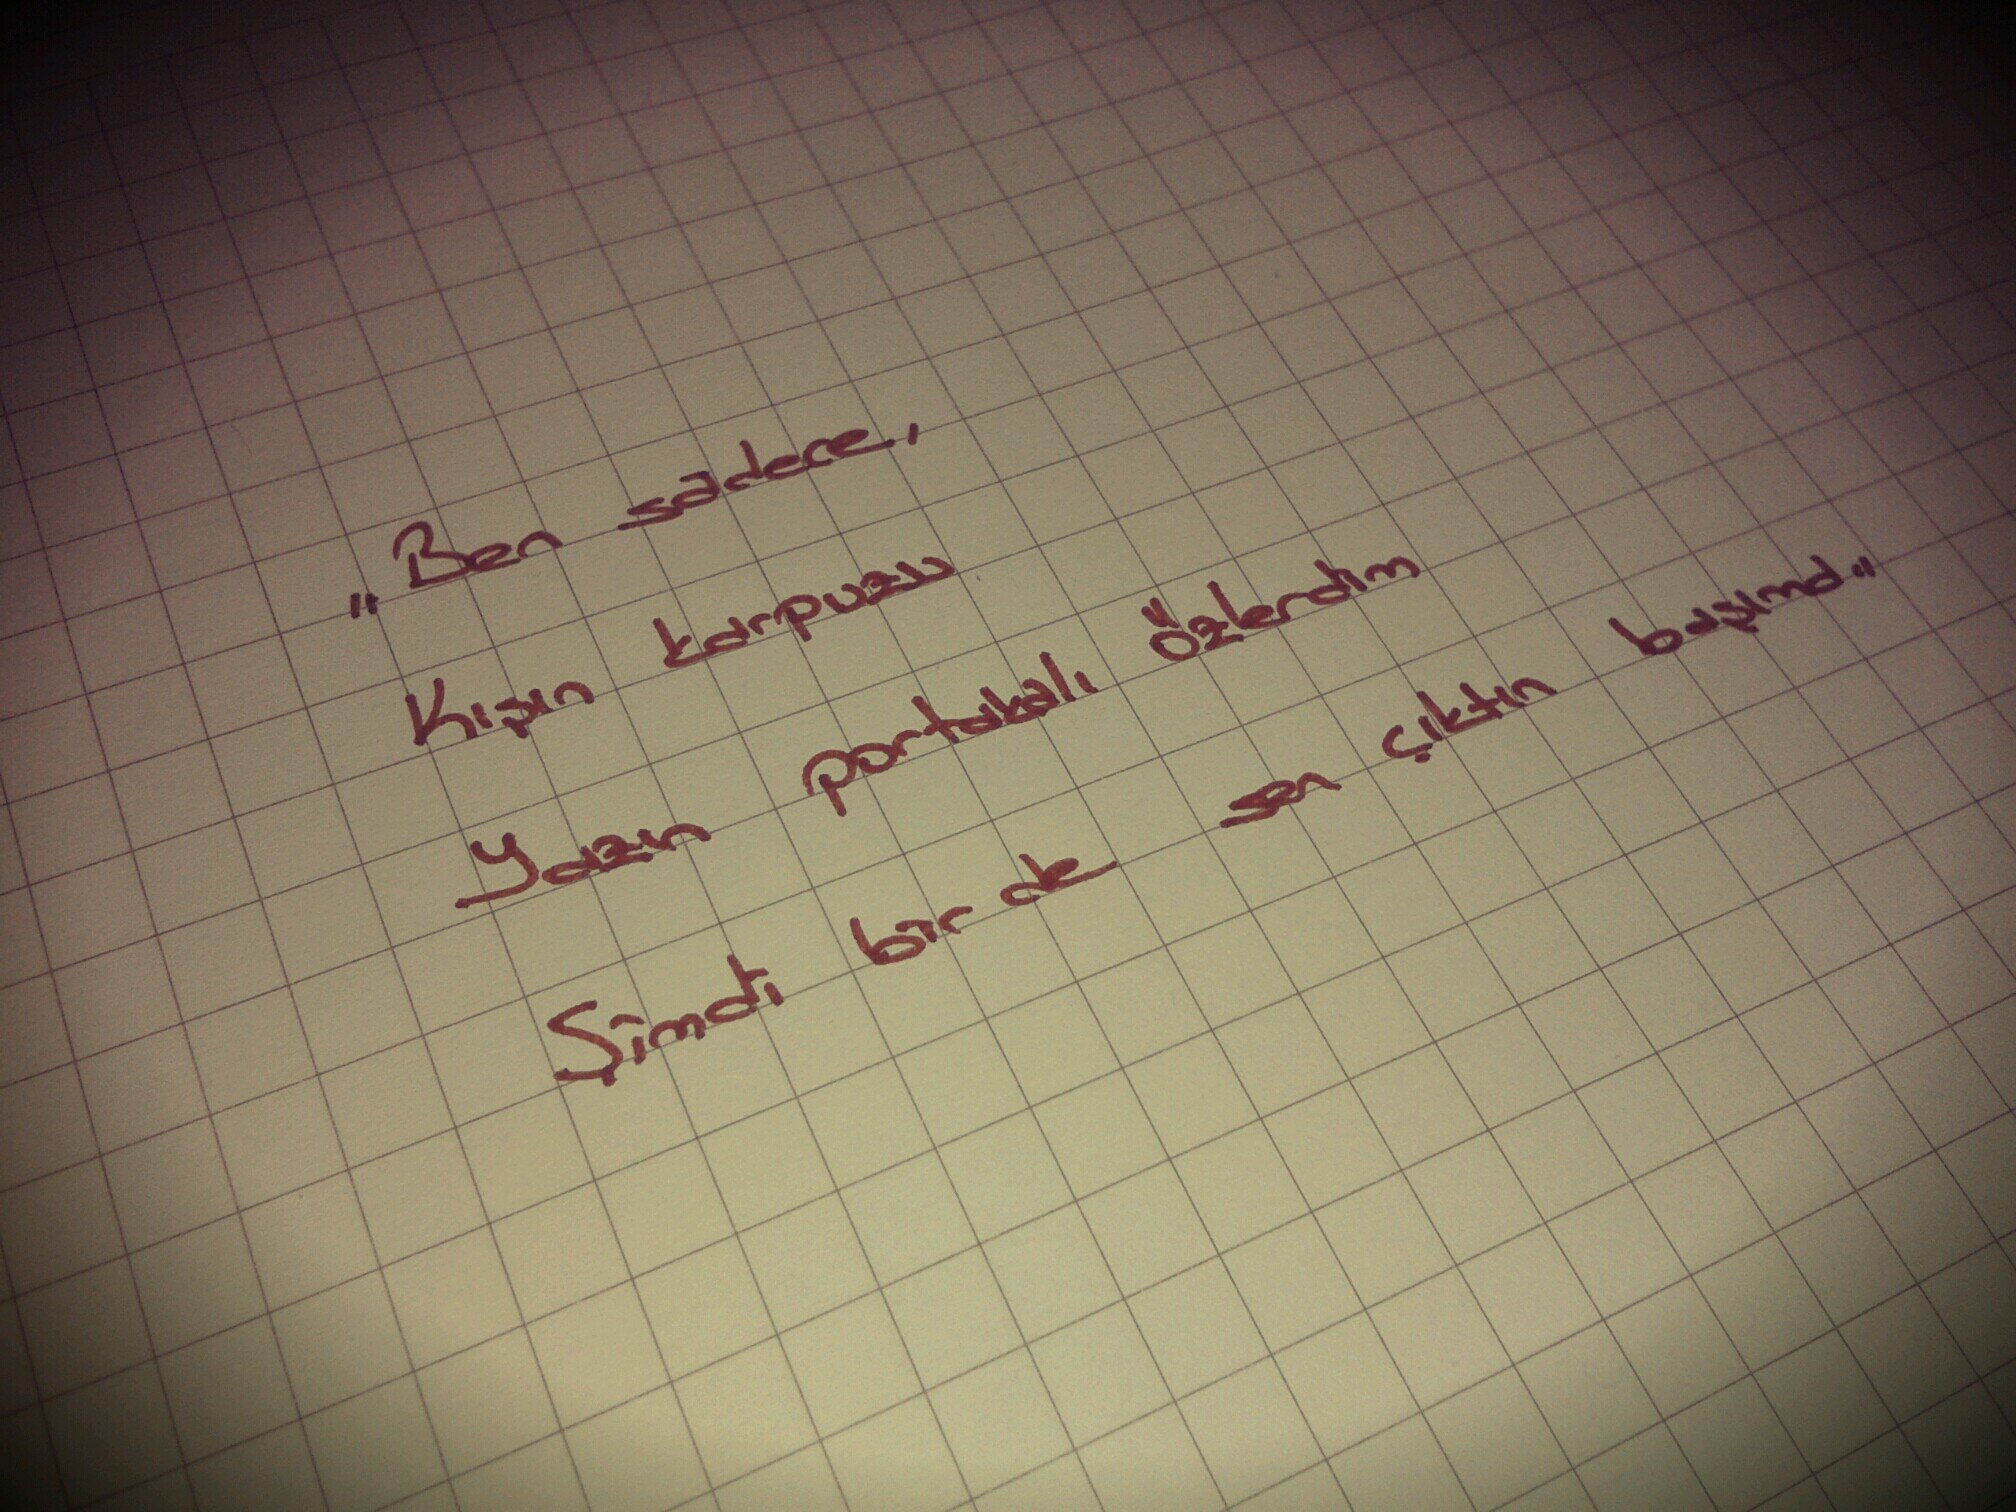 "Ben sadece,
Kışın karpuzu
Yazın portakalı özlerdim
Şimdi bir de sen çıktın başıma"